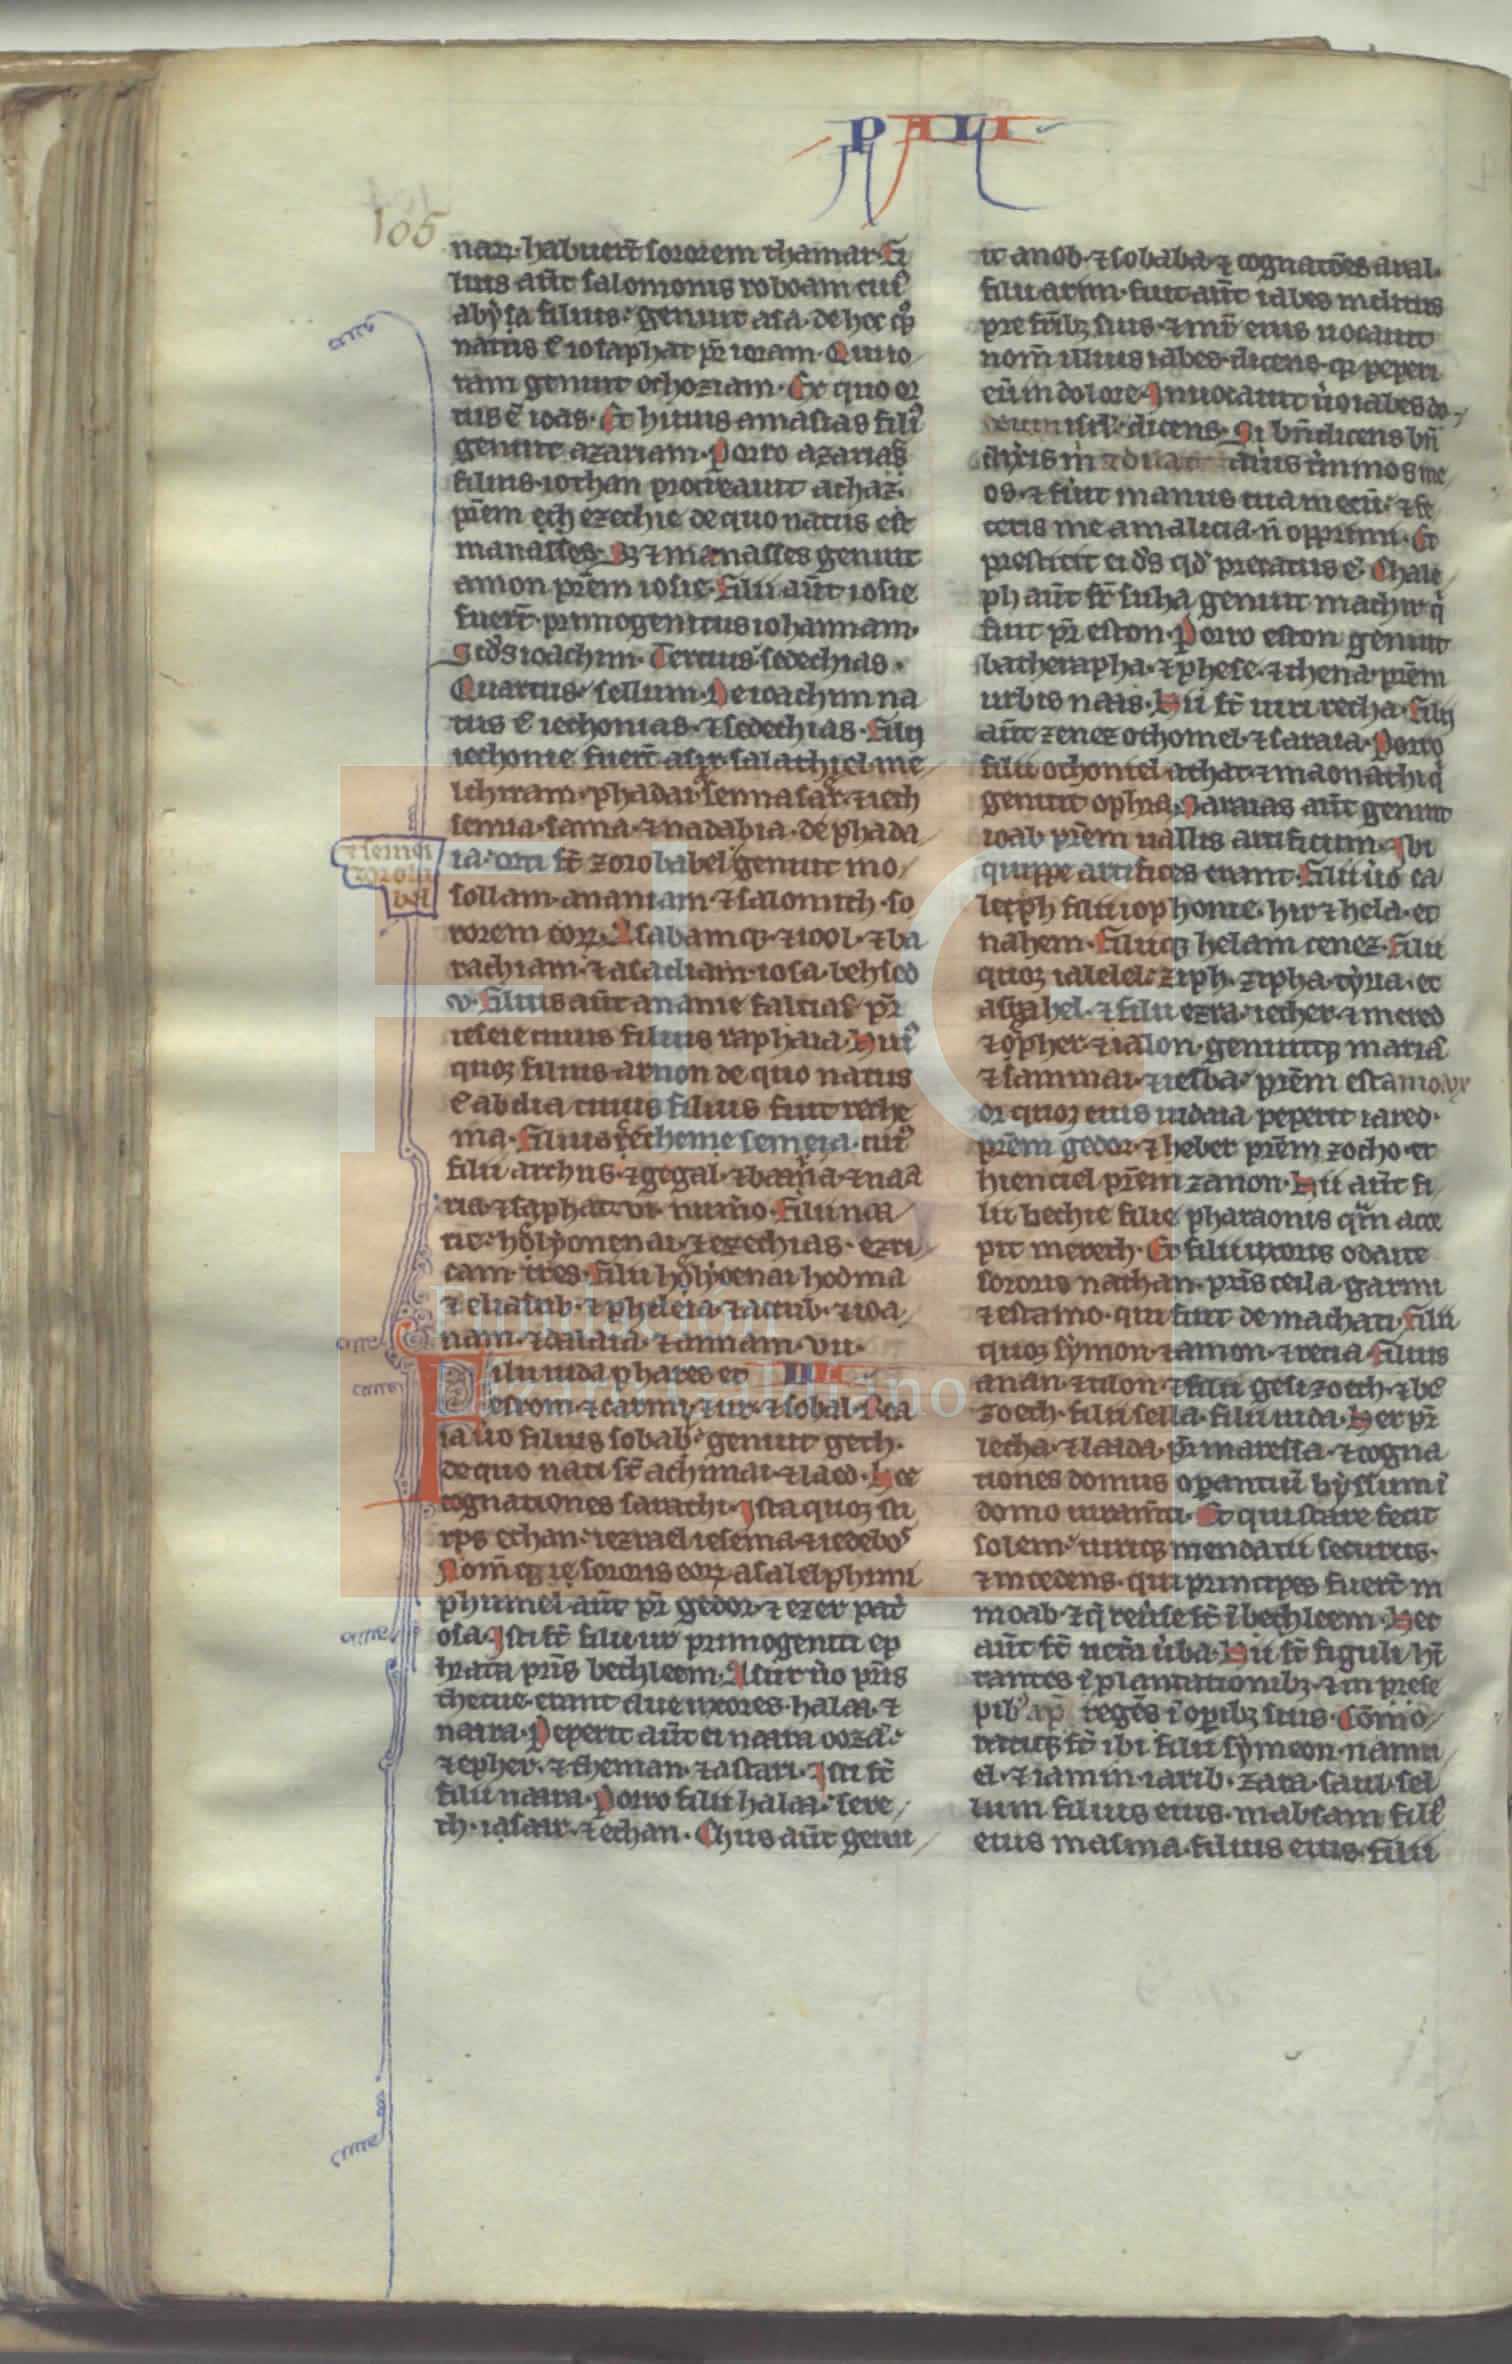 PALI
105
nar̃· habuer̃t sororem thamar· fi
lius aūt salomonis roboam cui᷒
abẏsa filius· genuit asa· de hoc q̄
natus ē iosaphat pr̄ ioram· Qui io
ram genuit ochoziam· Ex quo or
tus ē ioas· Et huius amasias fili᷒
genuit azariam· Porro azarias
filius· iothan procreauit achaz·
pr̄em ezechie de quo natus est
manasses· Sꝫ ⁊ manasses genuit
amon pr̄em iosie· filii aūt iosie
fuer̄t· primogenitus iohannam·
Scd̄s ioachim· Tercius sedechias·
Quartus sellum· De ioachim na
tus ē iechonias· ⁊ sedechias· filij
iechonie fuer̄t asir· salathiel· me
lchiram· phadai· sennasar· ⁊ iech
semia· sama· ⁊ nadabia· de phada
⁊ semei
zorobabel
ia· orti st̄ zorobabel genuit mo
sollam· ananiam· ⁊ salomith· so
rorem eoꝝ· Asabamqꝫ· ⁊ iool· ⁊ ba
rachiam· ⁊ asadiam· iosa· behsed
v· filius aūt ananie faltias pr̄
ieseie cuius filius raphaia· Hui᷒
quoqꝫ filius· arnon de quo natus
ē abdia cuius filius fuit reche
ma· filius recheme semeia· cui᷒
filii archus· ⁊ gegal· ⁊ baria· ⁊ naa
ria· ⁊ saphat· vi· numō· filii naa
rie· holẏonenai· ⁊ ezechias· ezri
cam· tres· filii holẏoenai hodma
⁊ eliasub· ⁊ pheleia· ⁊ acub· ⁊ ioa
nam· ⁊ dalaia· ⁊ annam· vii·
Filii iuda phares et IIII
esrom· ⁊ carmi· ⁊ ur· ⁊ sobal· Rea
ia ūo filius sobal· genuit geth·
de quo nati st̄ achimai· ⁊ laed· Hee
cognationes sarathi· Ista quoqꝫ sti
rps echan· iezrael iesema· ⁊ iedebos
Nom̄qꝫ sororis eoꝝ asalelphuni
phunuel aūt pr̄ gedor· ⁊ ezer pat̄
osa· Isti st̄ filii ur primogeniti ep
hrata pr̄is bethleem· Asur ūo pr̄is
thecue· erant due uxores· halaa· ⁊
naara· Peperit aūt ei naara oozā·
⁊ epher· ⁊ theman· ⁊ astari· Isti st̄
filii naara· Porro filii halaa· sere
th· ysaar· ⁊ echan· Chus aūt genu
it anob· ⁊ sobaba· ⁊ cognatōes aral·
filii arim· fuit aūt iabes inclitus
pre fr̄ibꝫ suis· ⁊ mr̄ eius uocauit
nom̄ illius iabes· dicens· qꝛ peperi
eū in dolore· Inuocauit ūo iabes do
dicens· Si bn̄dicens bn̄
dixeris m̄
os· ⁊ fūit manus tua mecū· ⁊ fe
ceris me a malicia n̄ opprimi· Et
prestitit ei ds̄ qd̄ precatus ē· Chale
ph aūt fr̄ suha genuit machir q̄
fuit pr̄ eston· Porro eston genuit
betherapha· ⁊ phese· ⁊ thena· pr̄em
urbis naas· Hii st̄ uiri recha· filij
aūt zenez othomel· ⁊ saraia· Porro
filii othoniel athat· ⁊ maonathi q̄
genuit ophra· Saraias aūt genuit
ioab pr̄em uallis artificum· Ibi
quippe artifices erant· filii ūo ca
leph filii iophone· hir ⁊ hela· et
nahem· filiiqꝫ helam cenez· filii
quoqꝫ ialelel· ziph· zipha· tẏria· et
asrahel· ⁊ filii ezra· iether· ⁊ mered
⁊ opher· ⁊ ialon· genuitqꝫ mariā
⁊ sammai· ⁊ iesba· pr̄em estamo· vx
or quoqꝫ eius iudaia peperit iared·
pr̄em gedor· ⁊ heber pr̄em zocho· et
hienciel pr̄em zanon· Hii aūt fi
lii bethie filie pharaonis quā acce
pit mereth· Et filii uxoris odaite
sororis nathan· pr̄is ceila· garmi
⁊ estamo· qui fuit de machati· filii
quoqꝫ sẏmon· ⁊ amon· ⁊ recia filius
anan· ⁊ tilon· ⁊ filii gesi zoeth· ⁊ be
zoeth· filii sella· filii iuda· Her pr̄
lecha· ⁊ laada· pr̄ maressa· ⁊ cogna
tiones domus opantiū bẏssum ī
domo iuram̄ti· Et qui stare fecit
solem· uiriqꝫ mendacii securus·
⁊ incedens· qui principes fuer̄t in
moab· ⁊ q̄ reūse st̄ ī bethleem· Hec
aūt st̄ uerba ūba· Hii st̄ figuli h̄i
tantes ī plantationibꝫ· ⁊ in prese
pib᷒ ap̄ reges ī opibꝫ suis· Cōmo
ratiqꝫ st̄ ibi· filii sẏmeon· namu
el· ⁊ iamin· iarib· zara· saul· sel
lum filius eius· mabsam fili᷒
eius masma· filius eius· filii